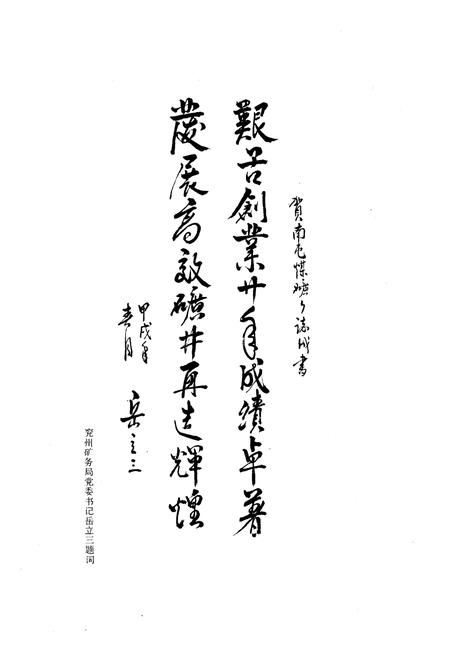 賀南屯煤矿矿誌成書
艱苦創業廿年成績卓著
發展高效礦井再造輝煌
甲戌年
春月
岳立三
兖州矿务局党委书记岳立三题词